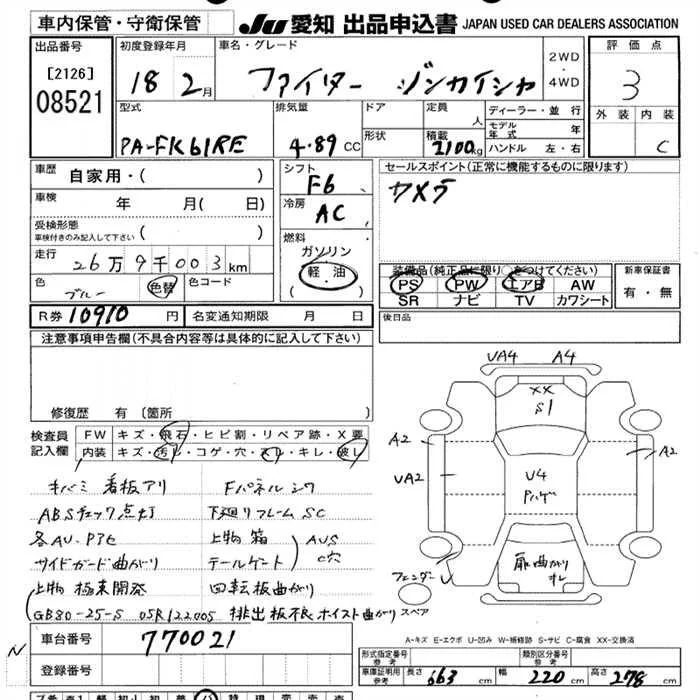 車内保管・守衛保管
JU 愛知 出品申込書 JAPAN USED CAR DEALERS ASSOCIATION
出品番号
[2126]
08521
初度登録年月
18 2月
車名・グレード
ファイター ゾンカイシャ
2WD
・
4WD
評価点
3
外装 内装
C
型式
PA-FK61RE
排気量
4.89 CC
ドア
形状
定員
人
積載
2100kg
ディーラー・並行
モデル年式 年
ハンドル 左・右
車歴
自家用・( )
シフト
F6
セールスポイント(正常に機能するものに限ります)
カメラ
車検
年 月( 日)
冷房
AC
受検形態
車検付きのみ記入して下さい ( )
燃料
ガソリン
軽・油
( ・ )
走行
26万9千003km
装備品(純正品に限り○をつけてください)
PS PW エアB AW
SR ナビ TV カワシート
新車保証書
有・無
色
ブルー
色替
色コード
R券 10910 円
名変通知期限 月 日
後日品
注意事項申告欄(不具合内容等は具体的に記入して下さい)
修復歴 有 〔箇所 〕
検査員
記入欄
FW キズ・飛石・ヒビ割・リペア跡・X要
内装 キズ・汚レ・コゲ・穴・スレ・キレ・破レ
キバミ 看板アリ
Fパネルシワ
ABSチェック点灯
下廻リフレームSC
各AU.Pヨセ
上物 箱
AUS
C穴
サイドガード曲がり
テールゲート
上物 極東開発
回転板曲がり
GB80-25-S 05R122005
排出板不良 ホイスト曲がり
UA4 A4
XX
S1
A2 A2
UA2
U4
Pハゲ
扉曲がり
フェンダー
スペア
A-キズ E-エクボ U-凹み W-補修跡 S-サビ C-腐食 XX-交換済
N
車台番号
770021
登録番号
形式指定番号
参考
類別区分番号
参考
車庫証明用
参考
長さ 663 cm 幅 220 cm 高さ 278 cm